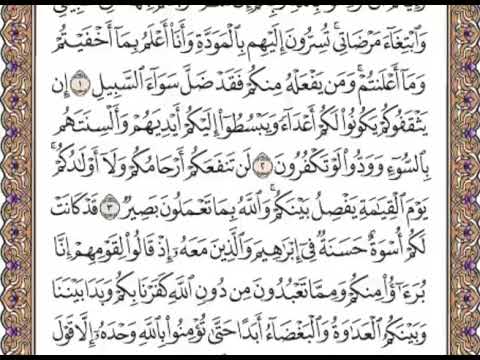 وَٱبْتِغَآءَ مَرْضَاتِى ۚ تُسِرُّونَ إِلَيْهِم بِٱلْمَوَدَّةِ وَأَنَا۠ أَعْلَمُ بِمَآ أَخْفَيْتُمْ
وَمَآ أَعْلَنتُمْ ۚ وَمَن يَفْعَلْهُ مِنكُمْ فَقَدْ ضَلَّ سَوَآءَ ٱلسَّبِيلِ ١ إِن
يَثْقَفُوكُمْ يَكُونُوا۟ لَكُمْ أَعْدَآءً وَيَبْسُطُوٓا۟ إِلَيْكُمْ أَيْدِيَهُمْ وَأَلْسِنَتَهُم
بِٱلسُّوٓءِ وَوَدُّوا۟ لَوْ تَكْفُرُونَ ٢ لَن تَنفَعَكُمْ أَرْحَامُكُمْ وَلَآ أَوْلَٰدُكُمْ ۚ
يَوْمَ ٱلْقِيَٰمَةِ يَفْصِلُ بَيْنَكُمْ ۚ وَٱللَّهُ بِمَا تَعْمَلُونَ بَصِيرٌ ٣ قَدْ كَانَتْ
لَكُمْ أُسْوَةٌ حَسَنَةٌ فِىٓ إِبْرَٰهِيمَ وَٱلَّذِينَ مَعَهُۥٓ إِذْ قَالُوا۟ لِقَوْمِهِمْ إِنَّا
بُرَءَٰٓؤُا۟ مِنكُمْ وَمِمَّا تَعْبُدُونَ مِن دُونِ ٱللَّهِ كَفَرْنَا بِكُمْ وَبَدَا بَيْنَنَا
وَبَيْنَكُمُ ٱلْعَدَٰوَةُ وَٱلْبَغْضَآءُ أَبَدًا حَتَّىٰ تُؤْمِنُوا۟ بِٱللَّهِ وَحْدَهُۥٓ إِلَّا قَوْلَ